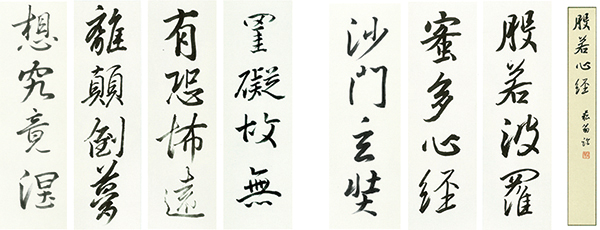 般若心経
般若波羅
蜜多心経
沙門玄奘
罣礙故無
有恐怖遠
離顛倒夢
想究竟涅